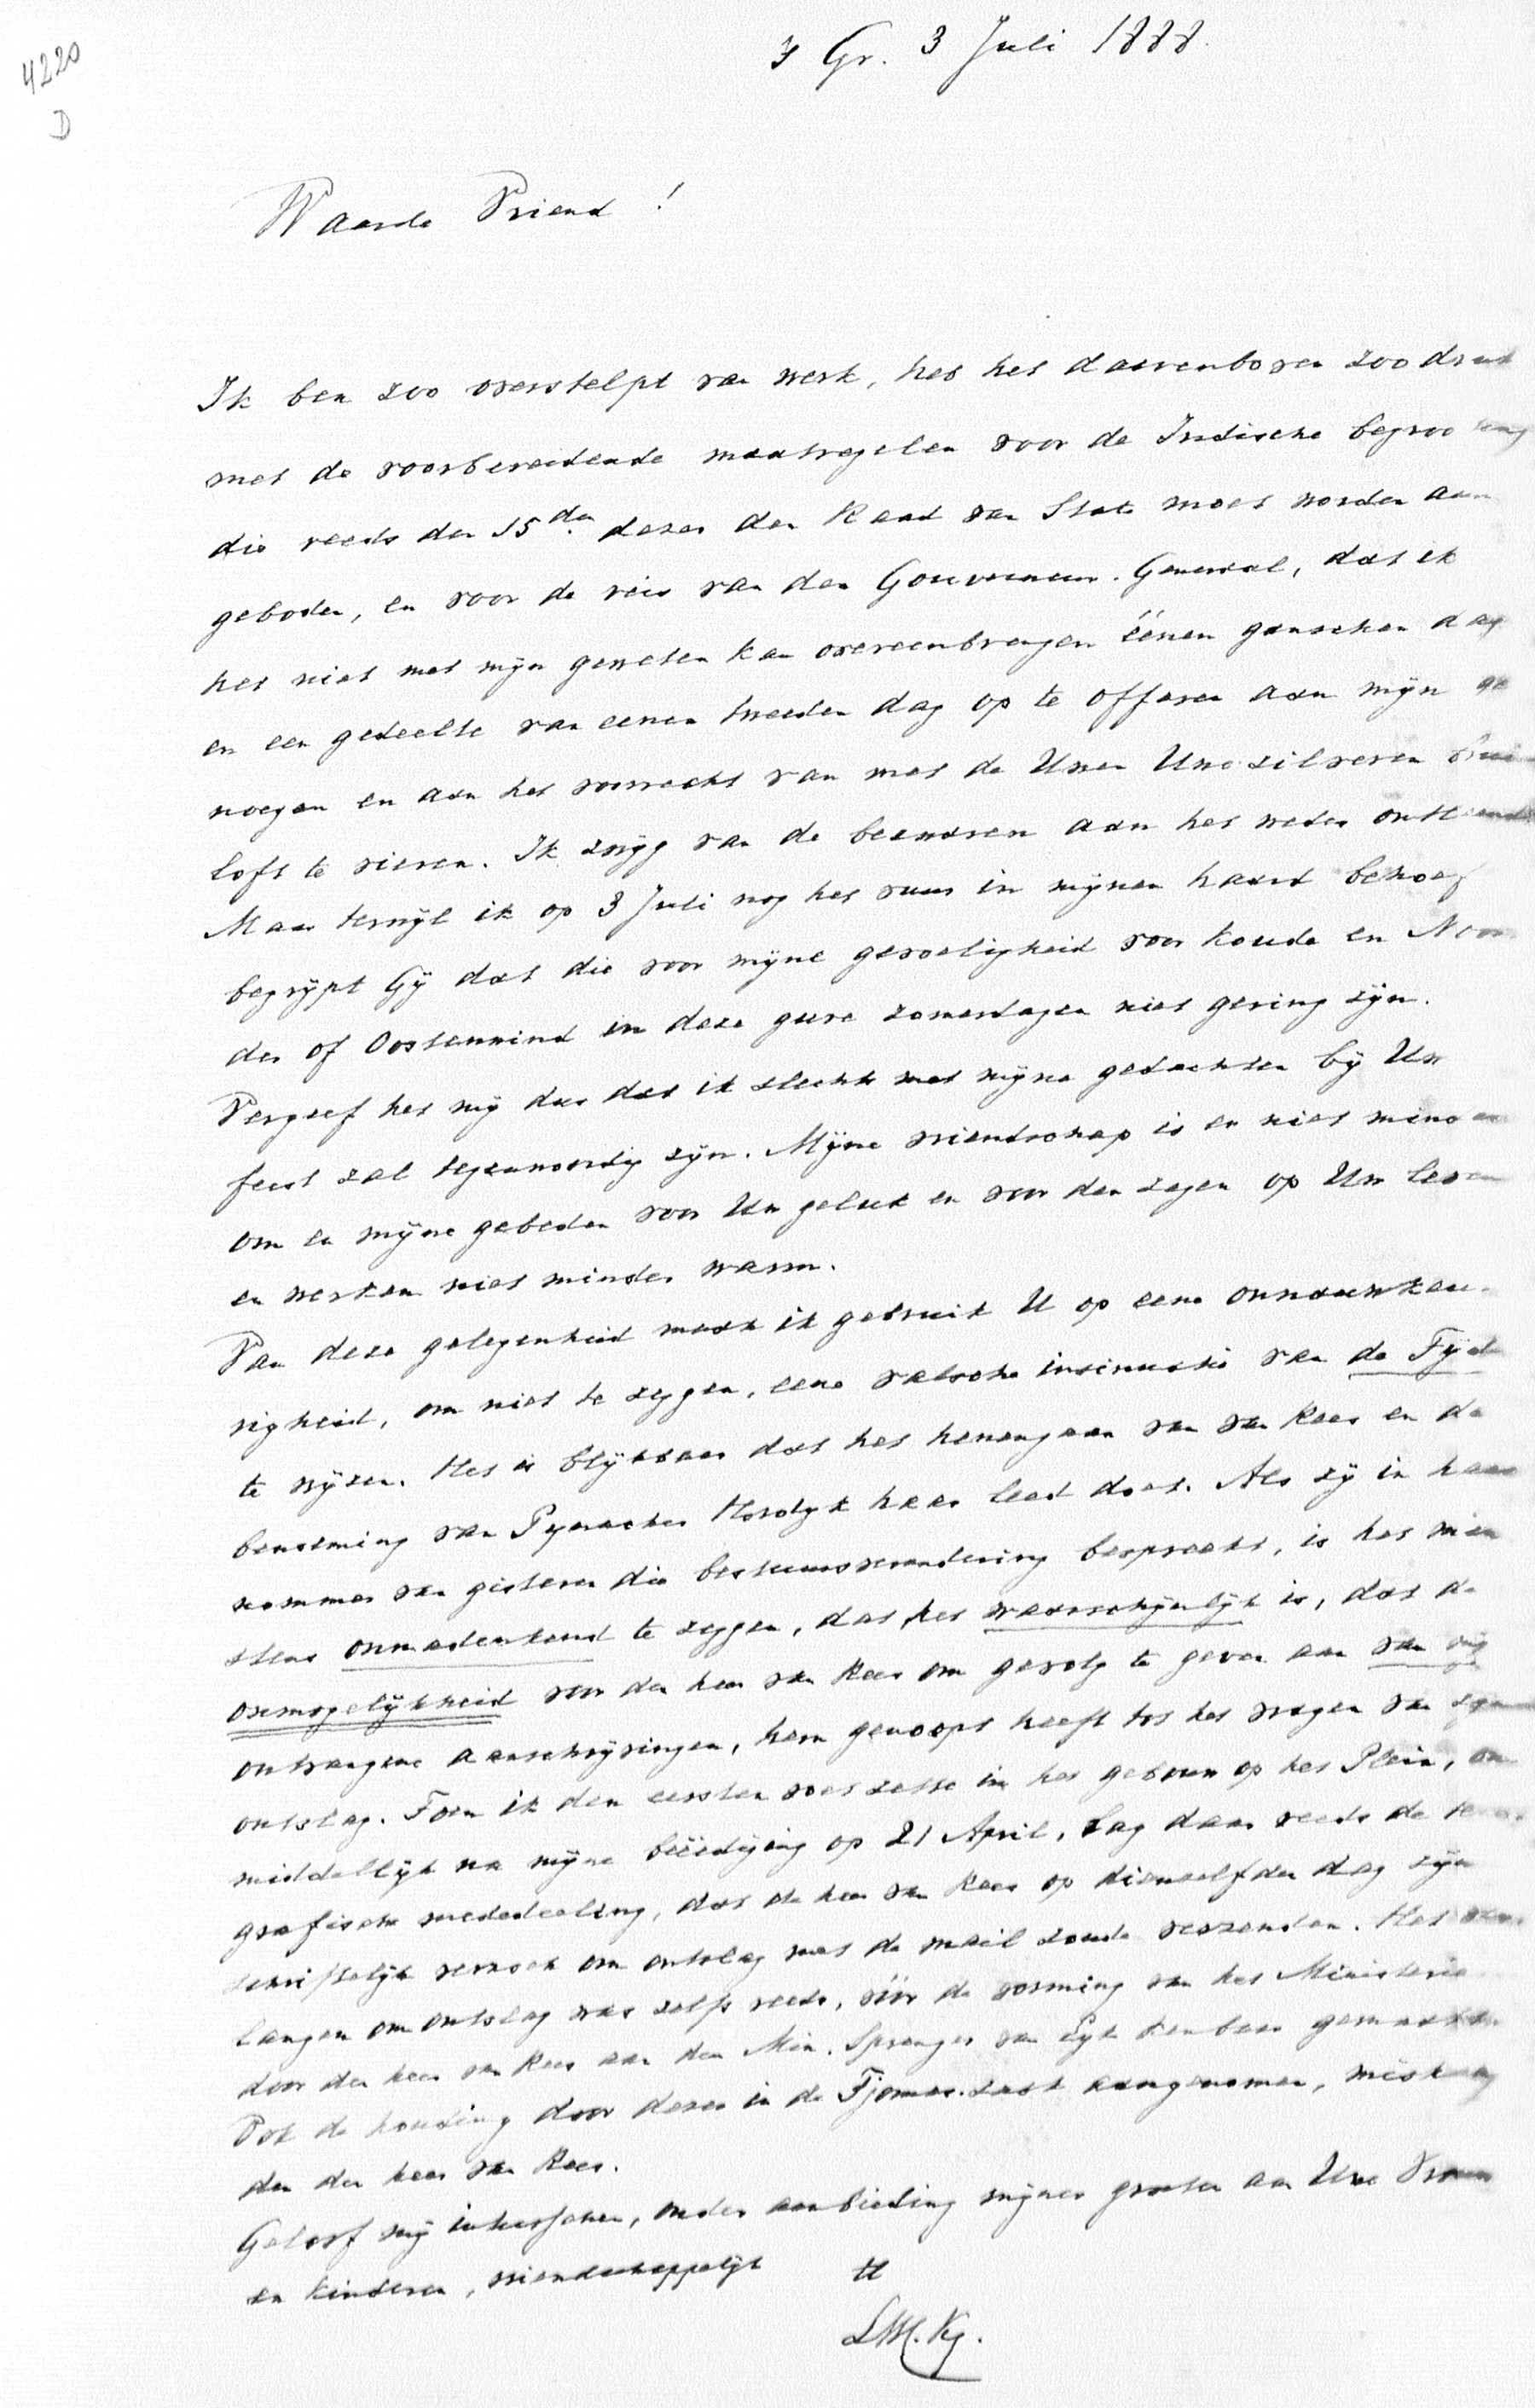 4220
D
's Gr. 3 Juli 1888.
Waarde Vriend!
Ik ben zoo overstelpt van werk, heb het daarenboven zoo druk
met de voorbereidende maatregelen voor de Indische begrooting
die reeds den 15den dezer den Raad van State moet worden aan
geboden, en voor de reis van den Gouverneur-Generaal, dat ik
het niet met mijn geweten kan overeenbrengen éénen ganschen dag
en een gedeelte van eenen tweeden dag op te offeren aan mijn ge
noegen en aan het voorrecht van met de Uwen Uwe zilveren brui
loft te vieren. Ik zwijg van de bezwaren aan het weder ontleend
Maar terwijl ik op 3 Juli nog het vuur in mijnen haard behoef
begrijpt Gij dat die voor mijne gevoeligheid voor koude en Noor
der of Oostenwind in deze gure zomerdagen niet gering zijn.
Vergeef het mij dus dat ik slechts met mijne gedachten bij Uw
feest zal tegenwoordig zijn. Mijne vriendschap is er niet minder
om en mijne gebeden voor Uw geluk en voor den zegen op Uw leven
en werken niet minder warm.
Van deze gelegenheid maak ik gebruik U op eene onnauwkeu-
righeid, om niet te zeggen, eene valsche insinuatie van de Tijd
te wijzen. Het is blijkbaar dat het henengaan van van Rees en de
benoeming van Pijnacker Hordijk haar leed doet. Als zij in haar
nommer van gisteren die bestuursverandering bespreekt, is het min
stens onnadenkend te zeggen, dat het waarschijnlijk is, dat de
onmogelijkheid voor den heer van Rees om gevolg te geven aan van mij
ontvangene aanschrijvingen, hem genoopt heeft tot het vragen van zijn
ontslag. Toen ik den eersten voet zette in het gebouw op het Plein, on
middellijk na mijne beëediging op 21 April, lag daar reeds de tele
grafische mededeeling, dat de heer van Rees op dienzelfden dag zijn
schriftelijk verzoek om ontslag met de mail zoude verzenden. Het ver
langen om ontslag was zelfs reeds, vóór de vorming van het Ministerie
door den heer van Rees aan den Min. Sprenger van Eyk kenbaar gemaakt
Ook de houding door dezen in de Tjomas-zaak aangenomen, mishaag
de den heer van Rees.
Geloof mij intusschen, onder aanbieding mijner groeten aan Uwe Vrouw
en kinderen, vriendschappelijk
tt
LW.Kg.